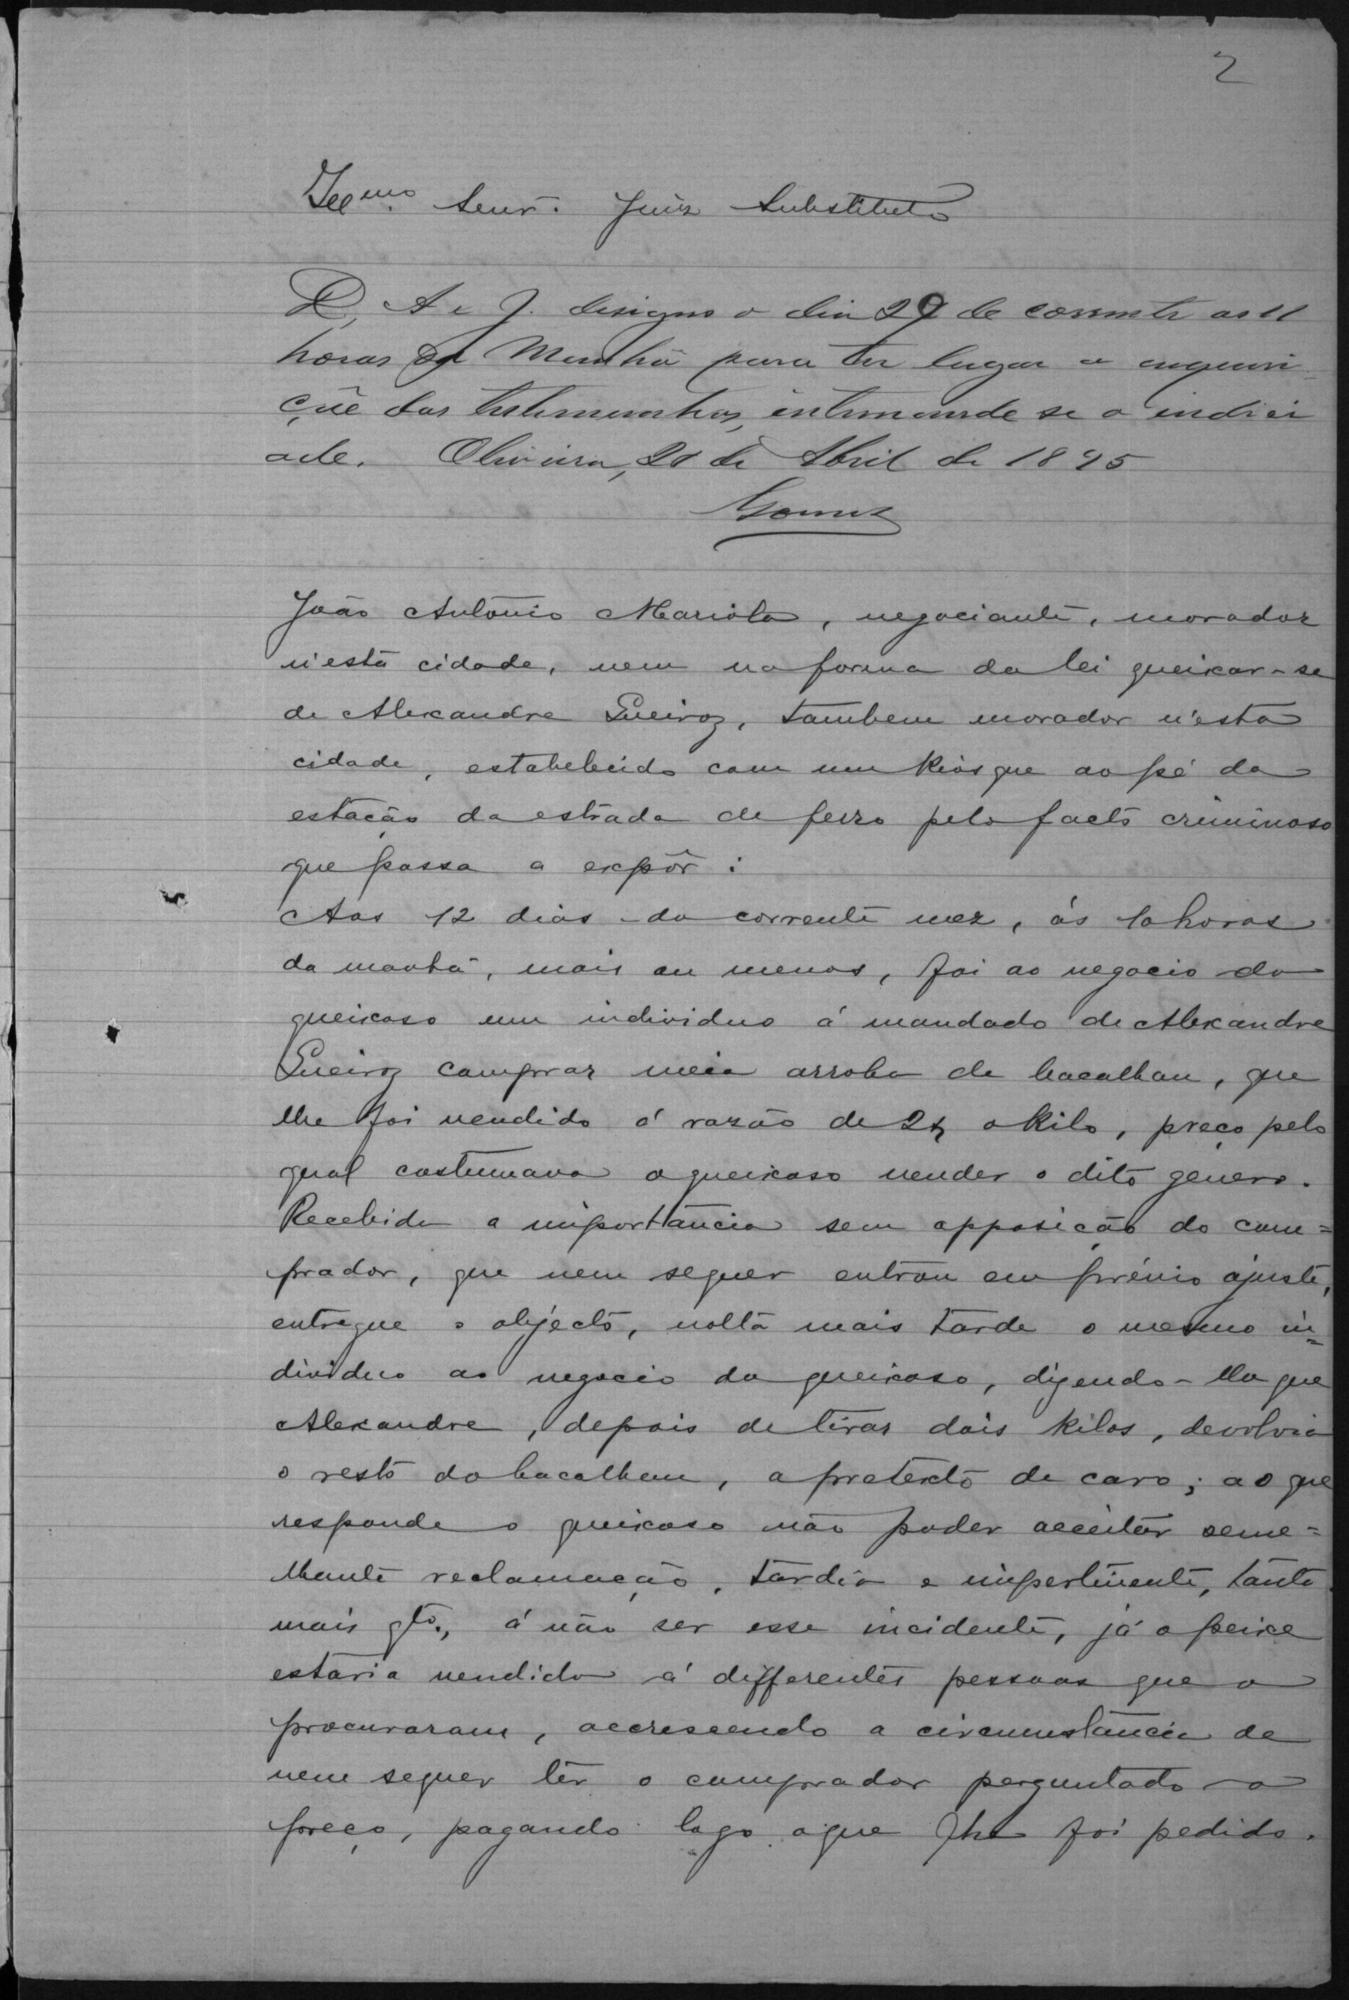 2
Illmo. Senr. Juiz Substituto
D. A e J. designo o dia 29 de corrente as 11
horas da Manhã para ter lugar a inquiri
ção das testemunhas, intimando se o indici
ado. Oliveira, 20 de Abril de 1895
Gomes
João Antônio Mariola, negociante, morador
n'esta cidade, vem na forma da lei queixar-se
de Alexandre Queiroz, tambem morador n'esta
cidade, estabelecido com um kiosque ao pé da
estação da estrada de ferro pelo facto criminoso
que passa a expôr:
Aos 12 dias do corrente mez, ás 10 horas
da manhã, mais ou menos, foi ao negocio do
queixoso um individuo á mandado de Alexandre
Queiroz comprar meia arroba de bacalhau, que
lhe foi vendido á razão de 2$ o kilo, preço pelo
qual costumava o queixoso vender o dito genero.
Recebida a importancia sem opposição do com=
prador, que nem sequer entrou em prévio ajuste,
entregue o objecto, volta mais tarde o mesmo in=
dividuo ao negocio do queixoso, dizendo-lhe que
Alexandre, depois de tirar dois kilos, devolvia
o resto do bacalhau, a pretexto de caro; ao que
responde o queixoso não poder acceitar seme=
lhante reclamação, tardia e impertinente, tanto
mais qto., á não ser esse incidente, já o peixe
estaria vendido á differentes pessoas que o
procuraram, accrescendo a circumstancia de
nem sequer ter o comprador perguntado o
preço, pagando logo o que lhe foi pedido.